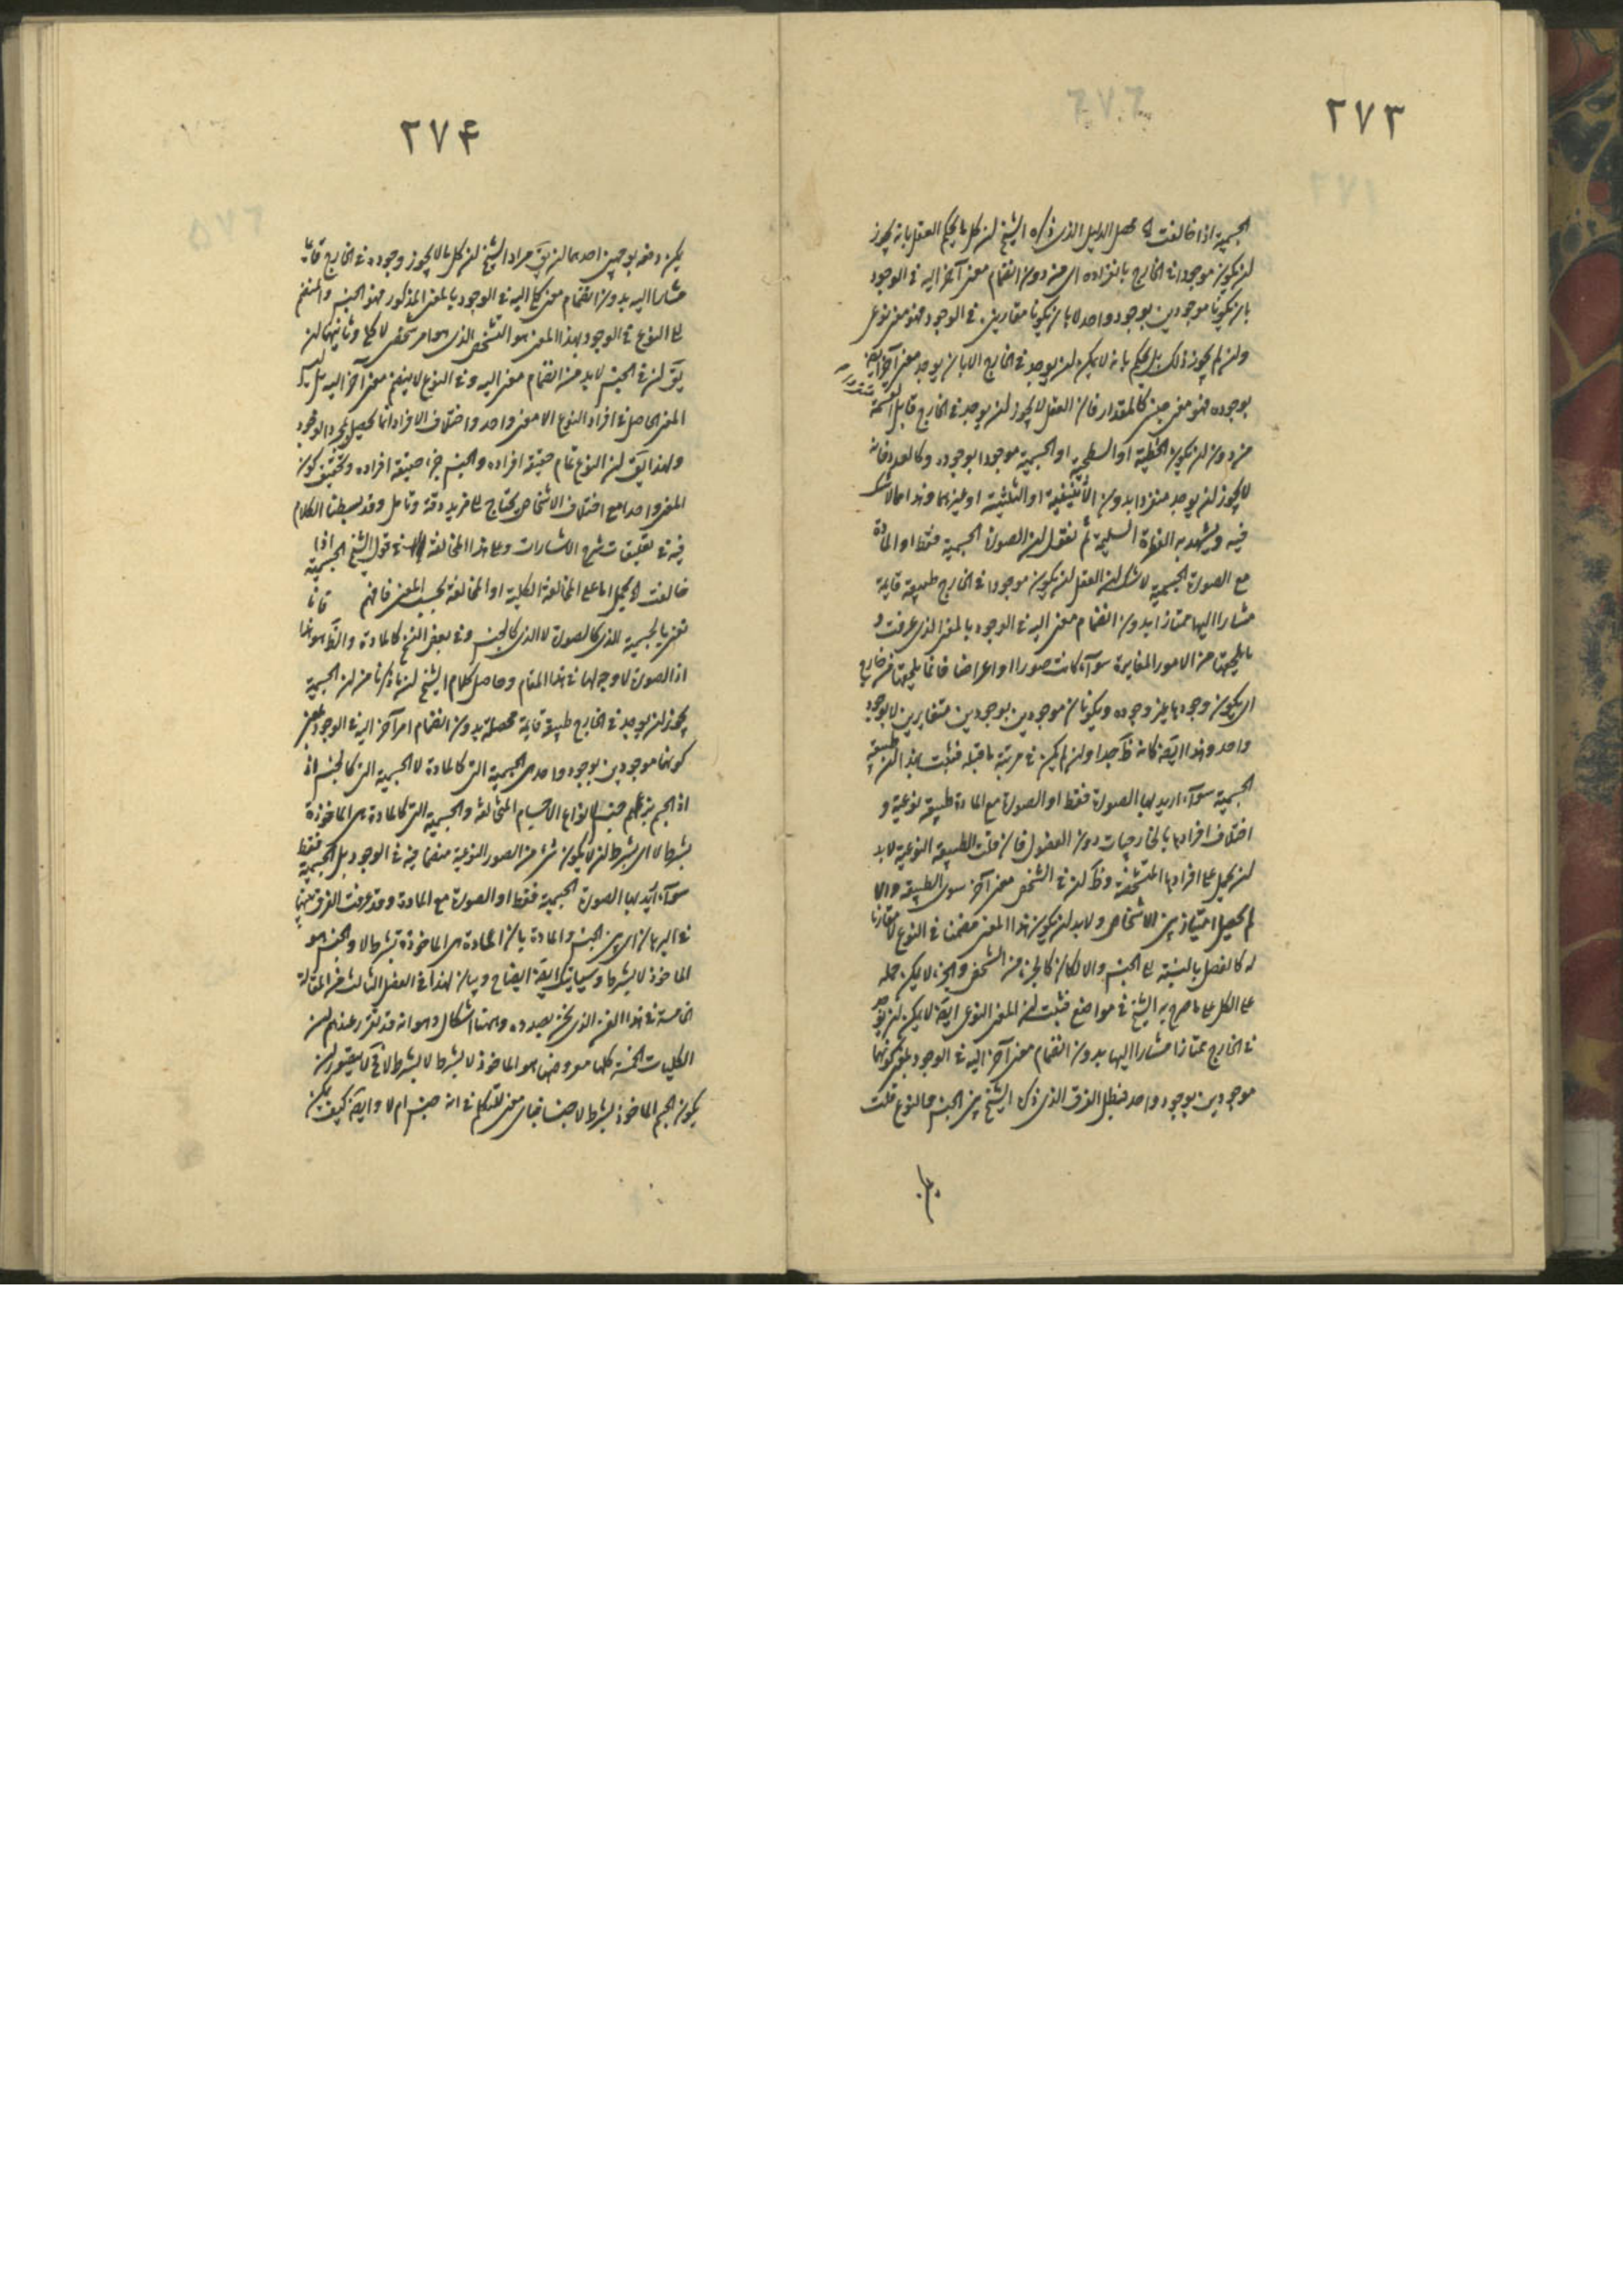 ٢٧٣
الجسمية اذا خالفت الخ محصل الدليل الذى ذكره الشيخ ان كل ما يحكم العقل بانه يجوز
ان يكون موجودا فى الخارج بانفراده اى من دون انضمام معنى آخر اليه فى الوجود
بان يكونا موجودين بوجود واحد لا بان يكونا مقارنين فى الوجود فهو معنى نوعى
وان لم يجوز ذلك بل يحكم بانه لا يمكن ان يوجد فى الخارج الا بان يوجد معنى آخر ايضا
بوجوده فهو معنى جنسى كالمقدار فان العقل لا يجوز ان يوجد فى الخارج قابل القسمة
من دون ان يكون الخطية او السطحية او الجسمية موجودا بوجوده وكالعدد فانه
لا يجوز ان يوجد منفردا بدون الاثنينية او الثلثية او غيرهما وهذا مما لا شك
فيه ويشهد به الفطرة السليمة ثم نقول ان الصورة الجسمية فقط او المادة
مع الصورة الجسمية لا شك ان العقل ان يكون موجودا فى الخارج طبيعة قايمة
مشارا اليها ممتازا بدون انضمام معنى اليه فى الوجود بالمعنى الذى عرفت و
ما يلحقها من الامور المغايرة سوآء كانت صورا او اعراضا فانما يلحقها من خارج
اى يكون وجودها غير وجوده ويكونان موجودين بوجودين متغايرين لا بوجود
واحد وهذا ايضا كانه ظ جدا وان لم يكن فى مرتبة ما قبله فثبت بهذا ان طبيعة
الجسمية سوآء اريد بها الصورة فقط او الصورة مع المادة طبيعة نوعية و
اختلاف افرادها بالخارجيات دون الفصول فان قلت الطبيعة النوعية لا بد
ان يحمل على افرادها المتشخصة وظ ان فى الشخص معنى آخر سوى الطبيعة والا
لم يحصل امتياز بين الاشخاص ولا بد ان يكون هذا المعنى مضمنا فى النوع لا مقارنا
له كالفصل بالنسبة الى الجنس والا لكان كالجزء من الشخص والجزء لا يمكن حمله
على الكل على ما صرح به الشيخ فى مواضع فثبت ان المعنى النوعى ايضا لا يمكن ان يوجد
فى الخارج ممتازا مشارا اليها بدون انضمام معنى آخر اليه فى الوجود بمعنى كونهما
موجودين بوجود واحد فبطل الفرق الذى ذكره الشيخ بين الجنس والنوع قلت
٢٧۴
يمكن دفعه بوجهين احدهما ان يق مراد الشيخ ان كل ما لا يجوز وجوده فى الخارج قايما
مشارا اليه بدون انضمام معنى كلى اليه فى الوجود بالمعنى المذكور فهو الجنس والمنضم
الى النوع فى الوجود بهذا المعنى هو التشخص الذى هو امر شخصى لا كلى وثانيهما ان
يق ان فى الجنس لا بد من انضمام معنى اليه وفى النوع لا ينضم معنى آخر اليه بل ليس
المعنى الحاصل فى افراد النوع الا معنى واحد واختلاف الافراد انما يحصل بمجرد الوجود
ولهذا يق ان النوع تمام حقيقة افراده والجنس جزء حقيقة افراده وتحقيق كون
المعنى واحدا مع اختلاف الاشخاص يحتاج الى مزيد دقة وتامل وقد بسطنا الكلام
فيه فى تعليقات شرح الاشارات وعلى هذا المخالفة فى قول الشيخ الجسمية اذا
خالفت الخ يحمل اما على المخالفة الكلية او المخالفة بحسب المعنى فافهم فانا
نعنى بالجسمية للذى كالصورة لا الذى كالجنس وفى بعض النسخ كالمادة والظ هو هذا
اذ الصورة لا وجه لها فى هذا المقام وحاصل كلام الشيخ ان ما ذكرنا من ان الجسمية
يجوز ان يوجد فى الخارج طبيعة قايمة محصلة بدون انضمام امر آخر اليه فى الوجود بمعنى
كونهما موجودين بوجود واحد هى الجسمية التى كالمادة لا الجسمية التى كالجنس اذ
اذ الجسم بزعمهم جنس لانواع الاجسام المختلفة والجسمية التى كالمادة هى الماخوذة
بشرط لا اى بشرط ان لا يكون شئ من الصور النوعية منضما فيه فى الوجود بل الجسمية فقط
سوآء اريد بها الصورة الجسمية فقط او الصورة مع المادة وقد عرفت الفرق بينهما
فى البرهان اى بين الجنس والمادة بان المادة هى الماخوذة بشرط لا والجنس هو
الماخوذ لا بشرط وسياتيك ايضا ايضاح وبيان لهذا فى الفصل الثالث من المقالة
الخامسة فى هذا الفن الذى نحن بصدده وههنا اشكال وهو انه قد تقرر عندهم ان
الكليات الخمسة كلها معروضها هو الماخوذ لا بشرط لا بشرط لا فح لا يتصور ان
يكون الجسم الماخوذ بشرط لا جنسا فباى معنى للتكلم فى انه جنس ام لا وايضا كيف يمكن